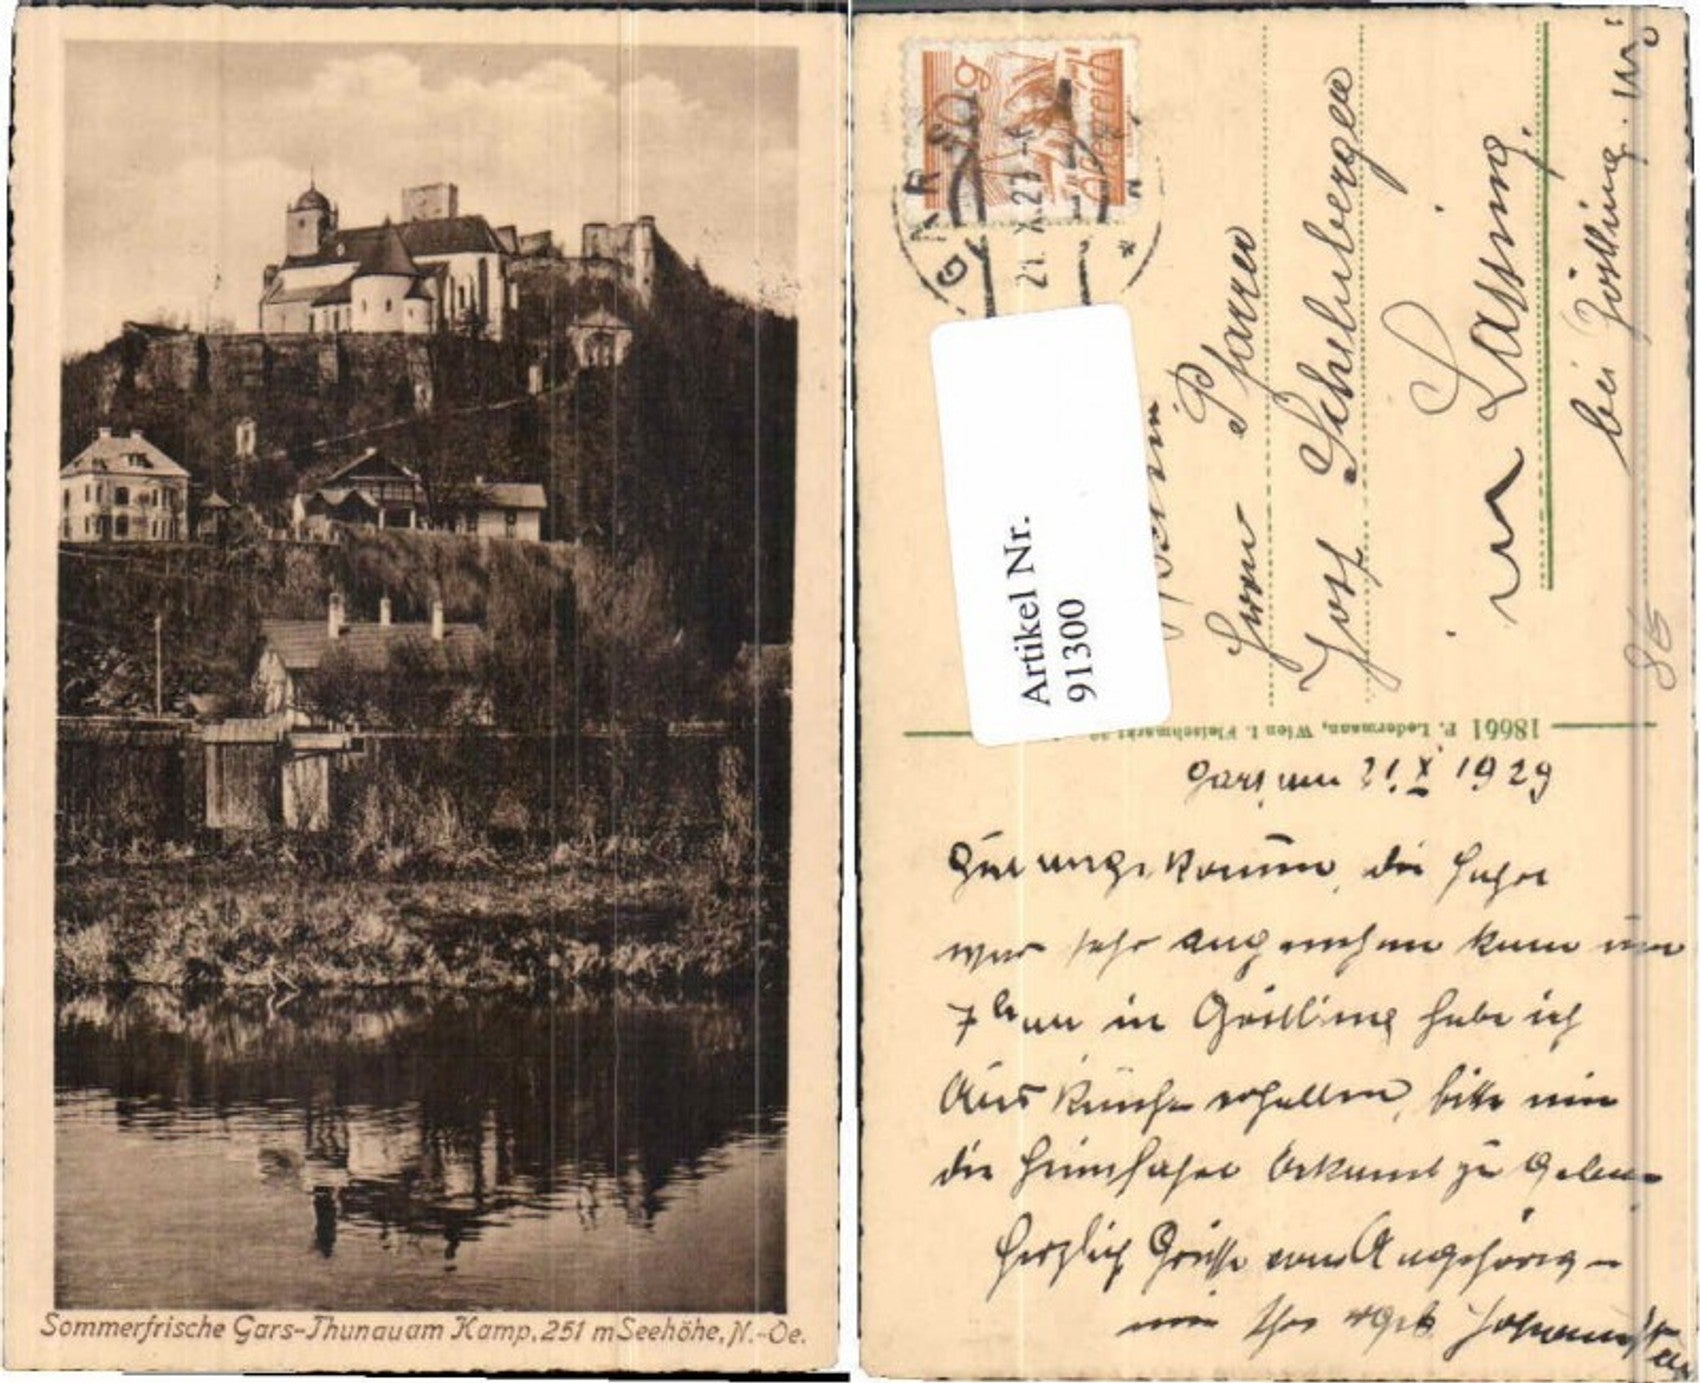 Sommerfrische Gars-Thunau am Kamp, 251 m Seehöhe, N.-Oe.
50 g
Österreich
GARS
21. X. 29
Artikel Nr.
91300
Herrn Pfarrer
Josef Schelnberger
in Lassing.
bei Göstling.
86
18661 P. Ledermann, Wien I. Fleischmarkt
Gars, am 21. X 1929
Gut angekommen, die Fahrt
war sehr angenehm kam um
7h an in Göstling habe ich
Auskünfte erhalten, bitte mir
die Heimfahrt bekannt zu geben
Herzlich Grüsse von Angehörigen